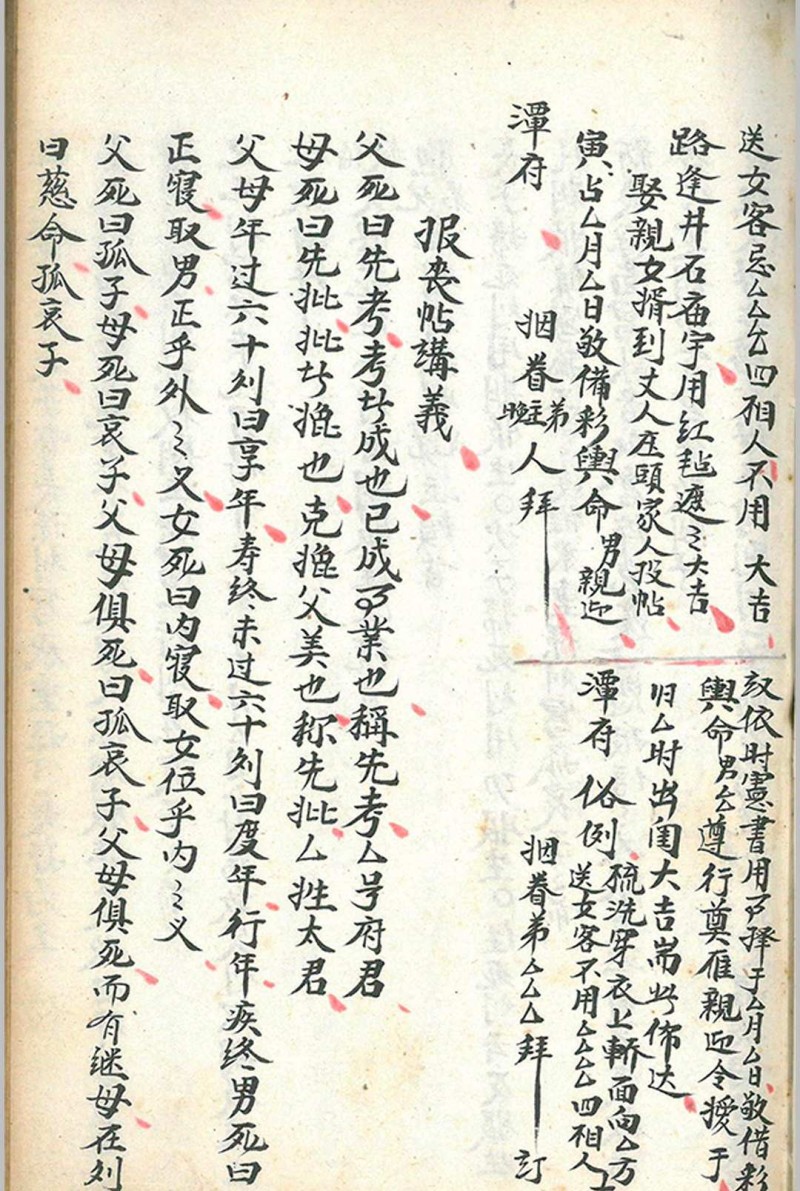 送女客忌厶厶厶四相人不用 大吉
路逢井石庙宇用红毡遮〻大吉
娶親女揹到丈人庄頭家人投帖
寅占厶月厶日敬備彩輿命男親迎
潭府
姻眷弟人拜
欵依时憲書用可择于厶月厶日敬借彩
輿命男厶遵行奠雁親迎令嬡于
归厶时出闺大吉耑此佈达
潭府 俗例
梳洗穿衣上轎面向厶方
送女客不用厶厶厶四相人
姻眷弟厶厶厶拜 訂
报丧帖講義
父死曰先考考者成也已成可業也稱先考厶号府君
母死曰先妣妣者媲也克媲父美也称先妣厶姓太君
父母年过六十则曰享年寿终未过六十则曰度年行年疾终男死曰
正寝取男正乎外〻义女死曰内寝取女位乎内〻义
父死曰孤子母死曰哀子父母俱死曰孤哀子父母俱死而有继母在则
曰慈命孤哀子